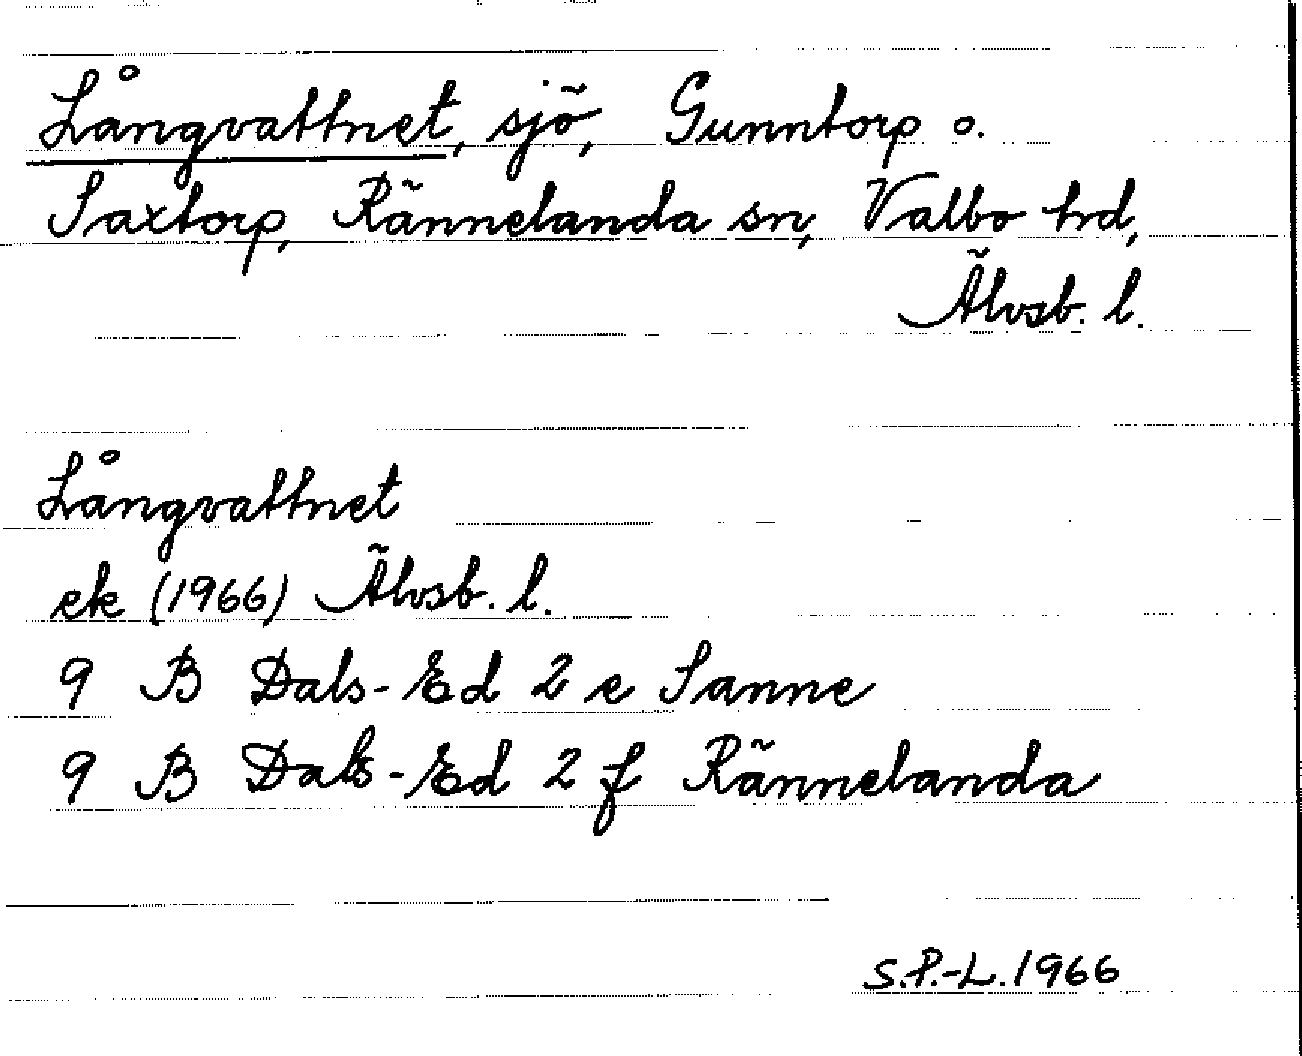 Långvattnet, sjö, Gunntorp o.
Saxtorp, Rännelanda sn, Valbo hd,
Älvsb. l.
Långvattnet
ek (1966) Älvsb. l.
9 B Dals-Ed 2 e Sanne
9 B Dals-Ed 2 f Rännelanda
S.P.-L. 1966